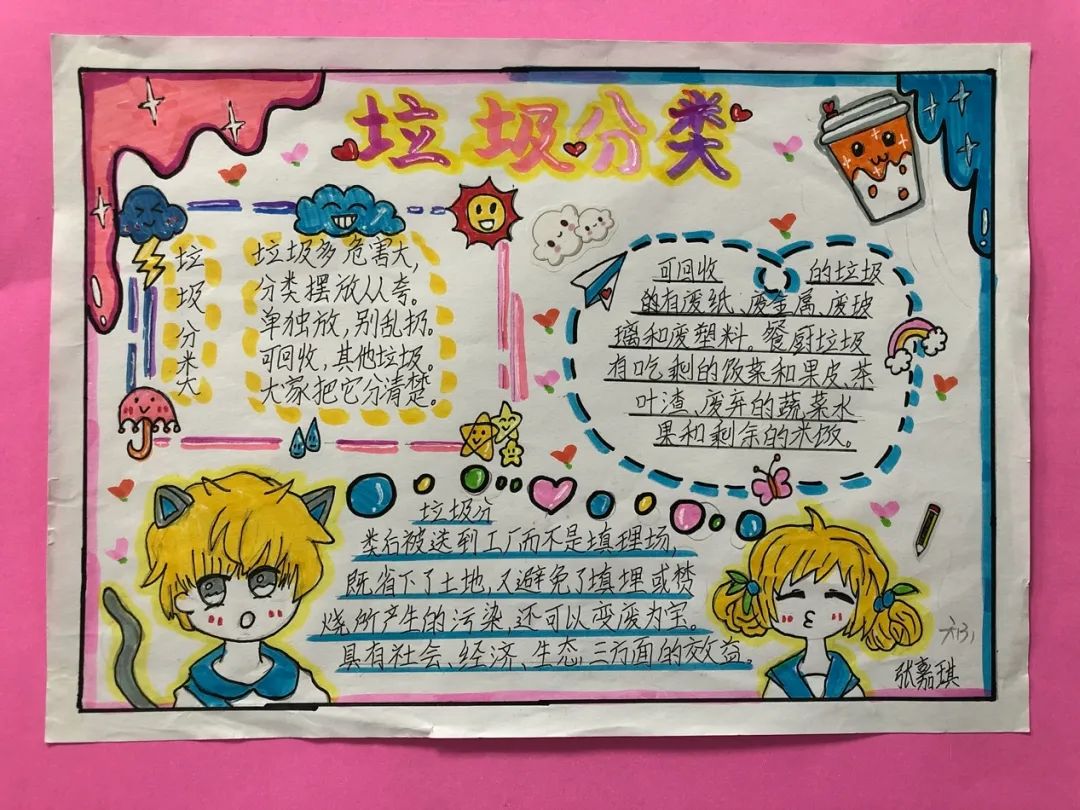 垃圾分类
垃
圾
分
类
垃圾多危害大,
分类摆放从夸。
单独放,别乱扔。
可回收,其他垃圾。
大家把它分清楚。
可回收 的垃圾
的有废纸、废金属、废玻
璃和废塑料。餐厨垃圾
有吃剩的饭菜和果皮、茶
叶渣、废弃的蔬菜水
果和剩余的米饭。
垃圾分
类后被送到工厂而不是填理场,
既省下了土地,又避免了填埋或焚
烧所产生的污染,还可以变废为宝。
具有社会、经济、生态,三方面的效益。
张嘉琪